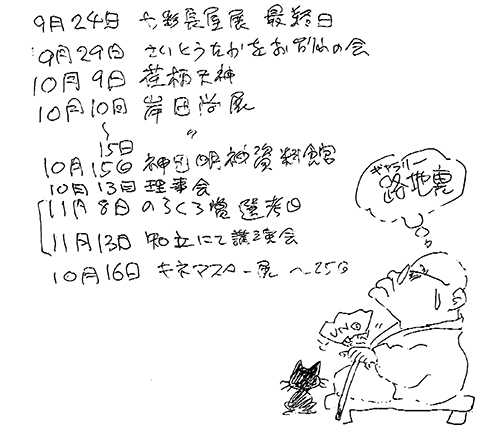 9月24日 長屋展 最終日
9月29日 さいとうたかをお別れの会
10月9日 荏柄天神
10月10日 岸田尚展
〜
15日 〃
10月15日 神田明神資料館
10月13日 理事会
11月8日 のらくろ賞選考日
11月13日 知立にて講演会
10月16日 キネマスター展 〜25日
ギャラリー
路地裏
UNO